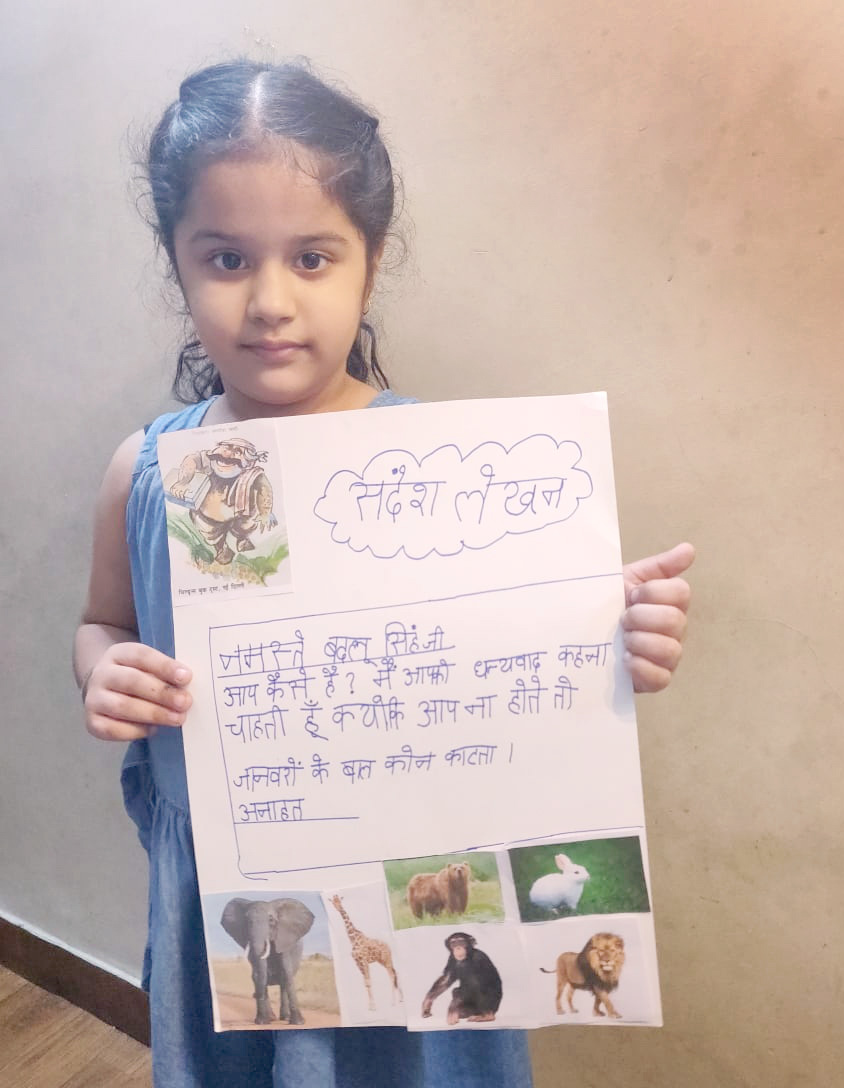 संदेश लेखन
नमस्ते बदलू सिहंजी
आप कैसे है? मैं आपको धन्यवाद कहना
चाहती हूँ क्योकि आप ना होते तो
जानवरों के बाल कोन काटता।
अनाहत